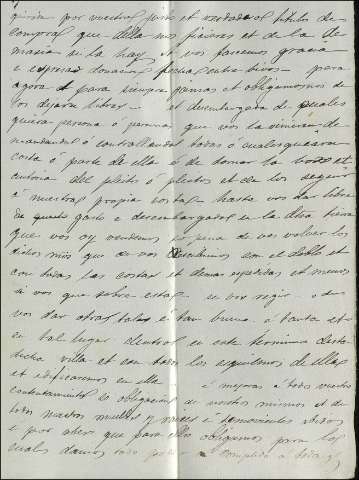 quirir por vuestro justo et verdadero titulo de
compra que della nos ficisres et de la de
masia si la hay et vos facemos gracia
e expresa donacion fecha entre vivos para
agora et para siempre jamas et obligamosnos de
los dejara libres et desembargada de quales
quiera persona ó personas que vos la vinieren de
mandando ó contrallando todas ó cualesquiera
cosa ó parte de ella ó de tomar la boz et
autoria del pleito ó pleitos et de los seguir
á nuestras propia costas hasta vos dar libre
gasto e desembargados en la dha tierra
que vos oy vendemos so pena de vos volver los
dichos mrs que de vos con el doblo et
con todas las costas et demas expedidas et menos
á vos que sobre esta
vos dar otras tales é tan buena é tanta et
en tal lugar dentro en este termino desta
dicha villa et con todos los esquilmos de ellas
et edificaremos en ella é mejoras á todo vuestro
contentamiento es obligacion de nosotros mismos et de
todos nuestros muebles y raices é semovientes abidos
e por aber que para ello obligamos para los
cuales damos poder complido á